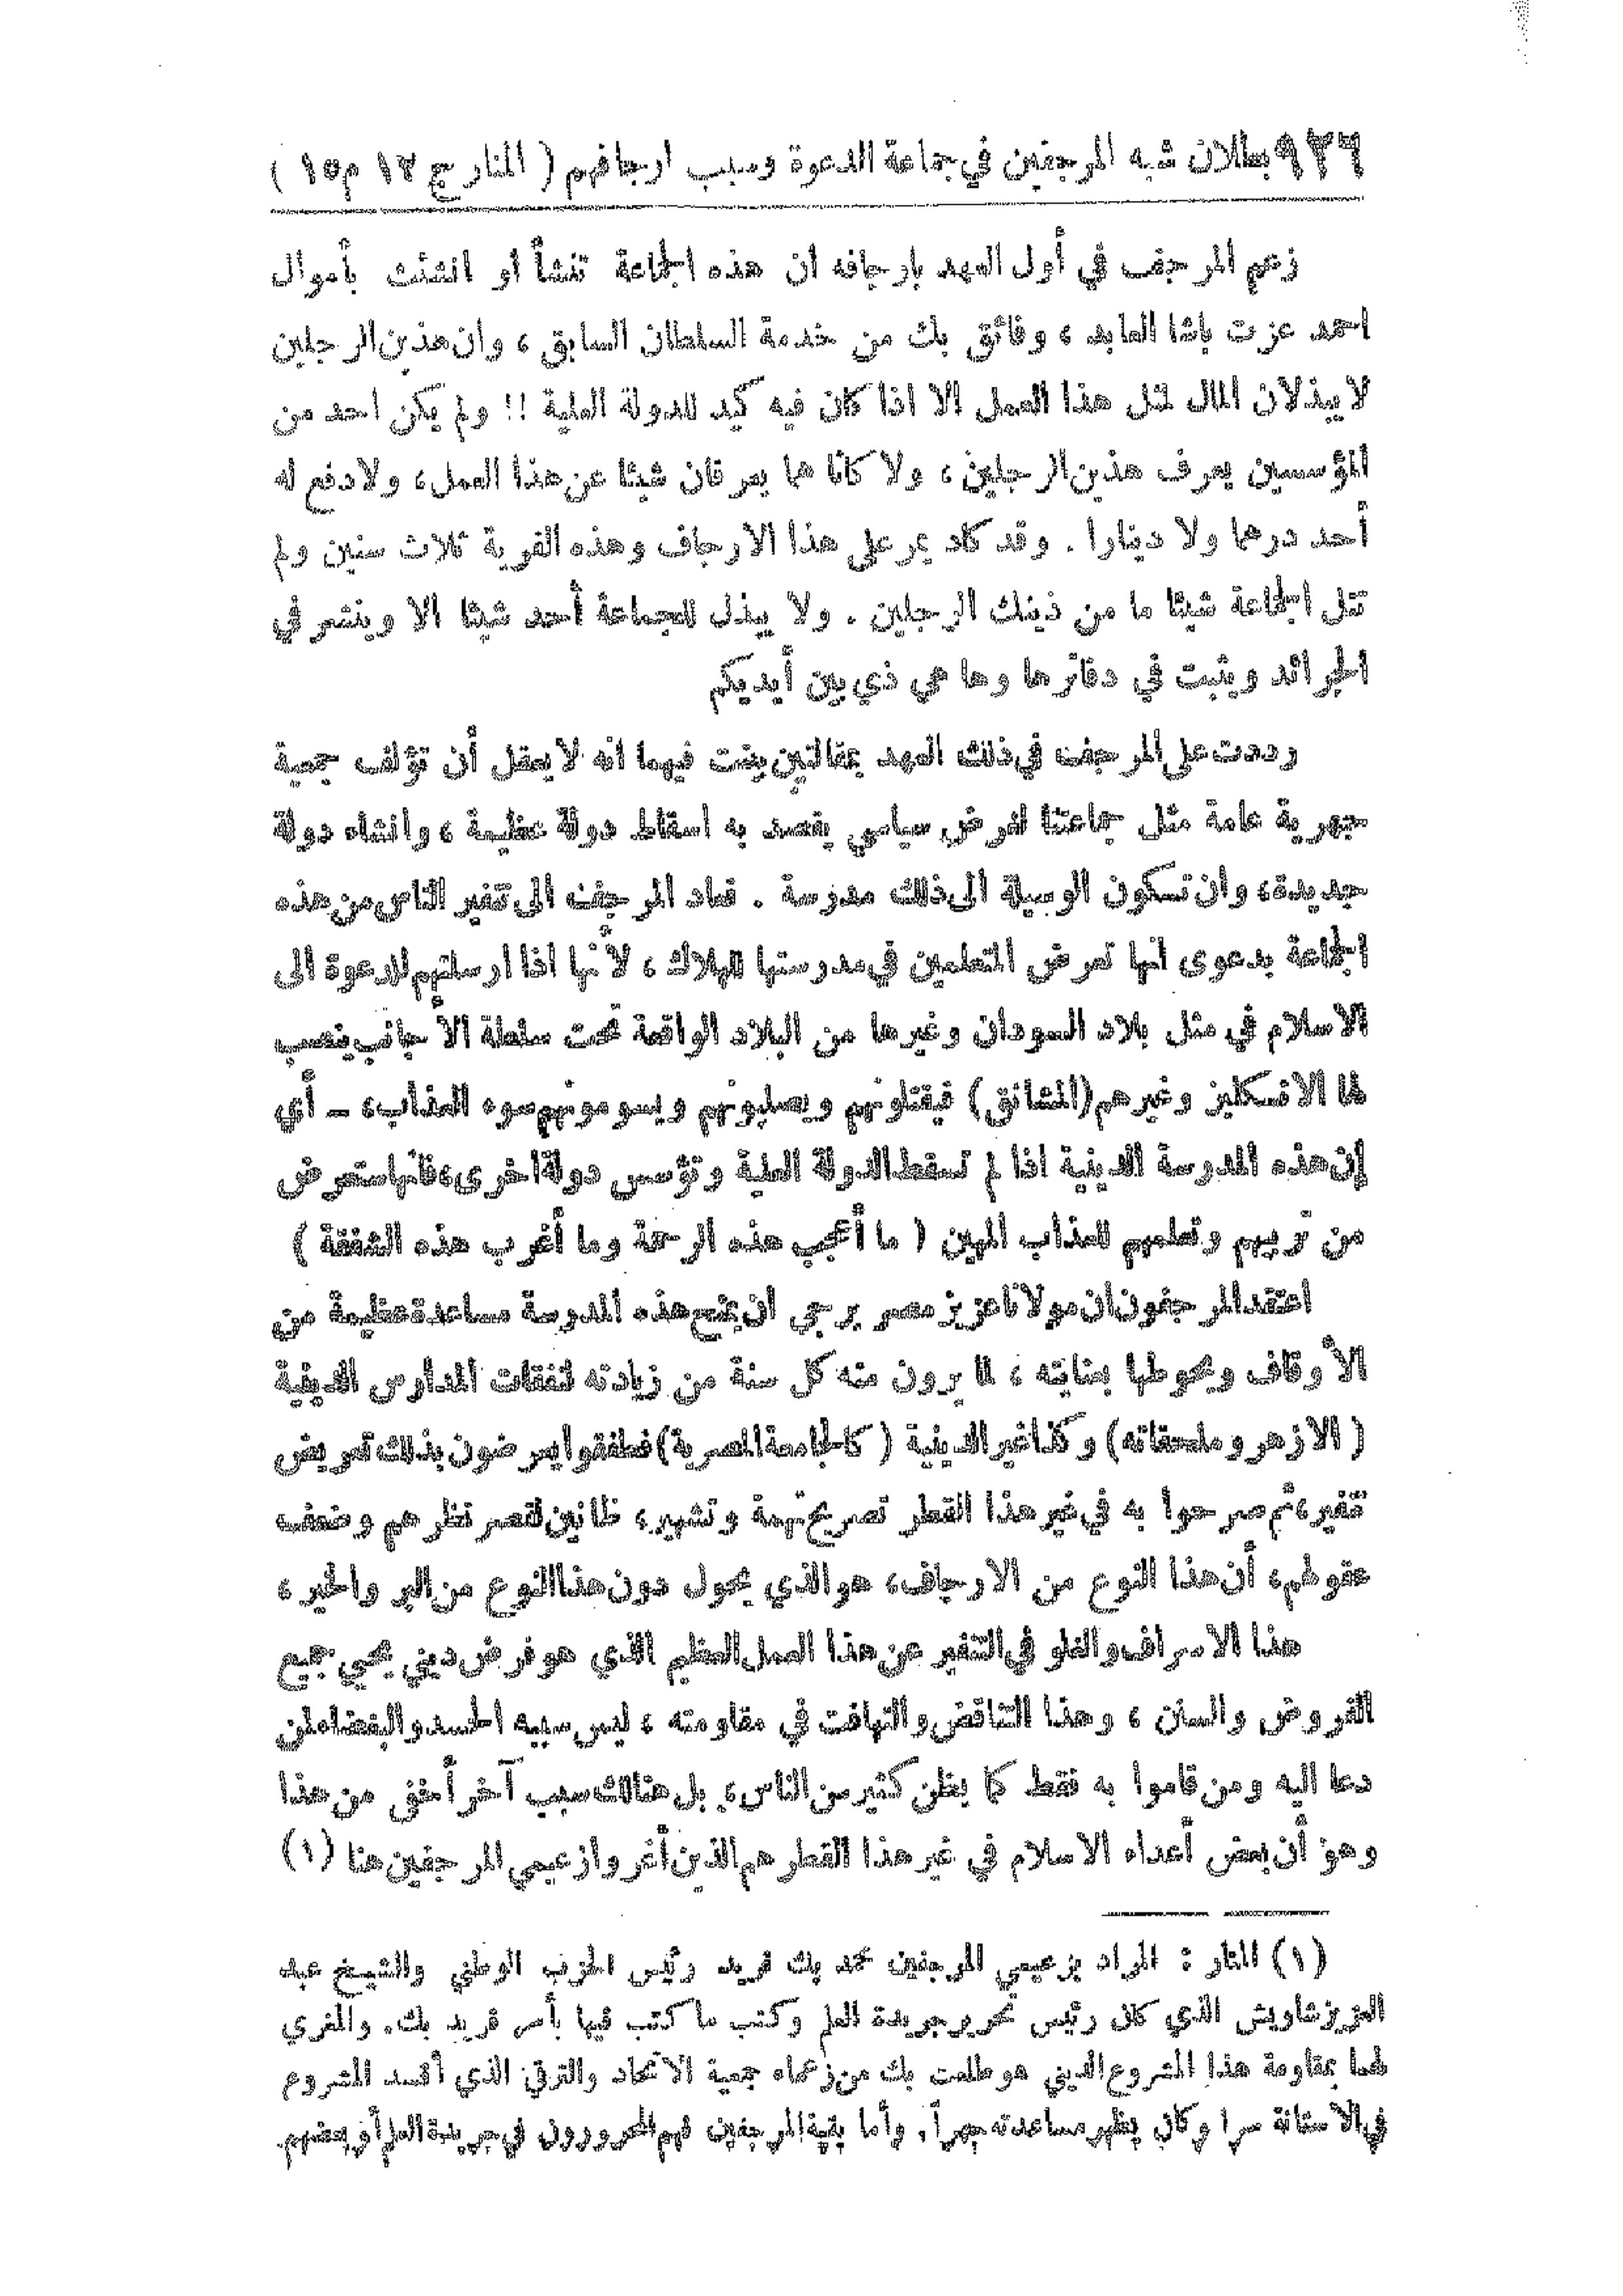 ٩٢٦ بطلان شبه المرجفين في جماعة الدعوة وسبب ارجافهم ( المنار ج ١٢ م ١٥ )
زعم المرجف في أول العهد بارجافه ان هذه الجماعة تنشأ أو انشئت بأموال
احمد عزت باشا العابد ، وفائق بك من خدمة السلطان السابق ، وان هذين الرجلين
لا يبذلان المال لمثل هذا العمل الا اذا كان فيه كيد للدولة العلية !! ولم يكن احد من
المؤسسين يعرف هذين الرجلين ، ولا كانا هما يعرفان شيئا عن هذا العمل ، ولا دفع له
أحد درهما ولا دينارا . وقد كاد يمر على هذا الارجاف وهذه الفرية ثلاث سنين ولم
تنل الجماعة شيئا ما من ذينك الرجلين . ولا يبذل للجماعة أحد شيئا الا وينشر في
الجرائد ويثبت في دفاترها وها هي ذي بين أيديكم
رددت على المرجف في ذلك العهد بمقالتين بينت فيهما انه لا يعقل أن تؤلف جمعية
جهرية عامة مثل جماعتنا لغرض سياسي يقصد به اسقاط دولة عظيمة ، وانشاء دولة
جديدة ، وان تكون الوسيلة الى ذلك مدرسة . فعاد المرجف الى تنفير الناس من هذه
الجماعة بدعوى انها تعرض المتعلمين في مدرستها للهلاك ، لأنها اذا ارسلتهم للدعوة الى
الاسلام في مثل بلاد السودان وغيرها من البلاد الواقعة تحت سلطة الأجانب ينصب
لها الانكليز وغيرهم (المشانق) فيقتلونهم ويصلبونهم ويسومونهم سوء العذاب ، ــ أي
إن هذه المدرسة الدينية اذا لم تسقط الدولة العلية وتؤسس دولة اخرى ، فانها ستعرض
من تربيهم وتعلمهم للعذاب المهين ( ما أعجب هذه الرحمة وما أغرب هذه الشفقة )
اعتقد المرجفون ان مولانا عزيز مصر يرجى ان يمنح هذه المدرسة مساعدة عظيمة من
الأوقاف ويحوطها بعنايته ، لما يرون منه كل سنة من زيادته لنفقات المدارس الدينية
( الازهر وملحقاته ) وكذا غير الدينية ( كالجامعة المصرية ) فطفقوا يعرضون بذلك تعريض
تنفير ، ثم صرحوا به في غير هذا القطر تصريح تهمة وتشهير ، ظانين لقصر نظرهم وضعف
عقولهم ، أن هذا النوع من الارجاف ، هو الذي يحول دون هذا النوع من البر والخير ،
هذا الاسراف والغلو في التنفير عن هذا العمل العظيم الذي هو فرض ديني يحيي جميع
الفروض والسنن ، وهذا التناقض والتهافت في مقاومته ، ليس سببه الحسد والبغضاء لمن
دعا اليه ومن قاموا به فقط كما يظن كثير من الناس ، بل هنالك سبب آخر أخفى من هذا
وهو أن بعض أعداء الاسلام في غير هذا القطر هم الذين أغروا زعيمي المرجفين هنا (١)
(١) المنار : المراد بزعيمي المرجفين محمد بك فريد رئيس الحزب الوطني والشيخ عبد
العزيز شاويش الذي كان رئيس تحرير جريدة العلم وكتب ما كتب فيها بأمر فريد بك. والمغري
لهما بمقاومة هذا المشروع الديني هو طلعت بك من زعماء جمعية الاتحاد والترقي الذي أفسد المشروع
في الآستانة سرا وكان يظهر مساعدته جهراً. وأما بقية المرجفين فهم المحررون في جريدة العلم أو بعضهم